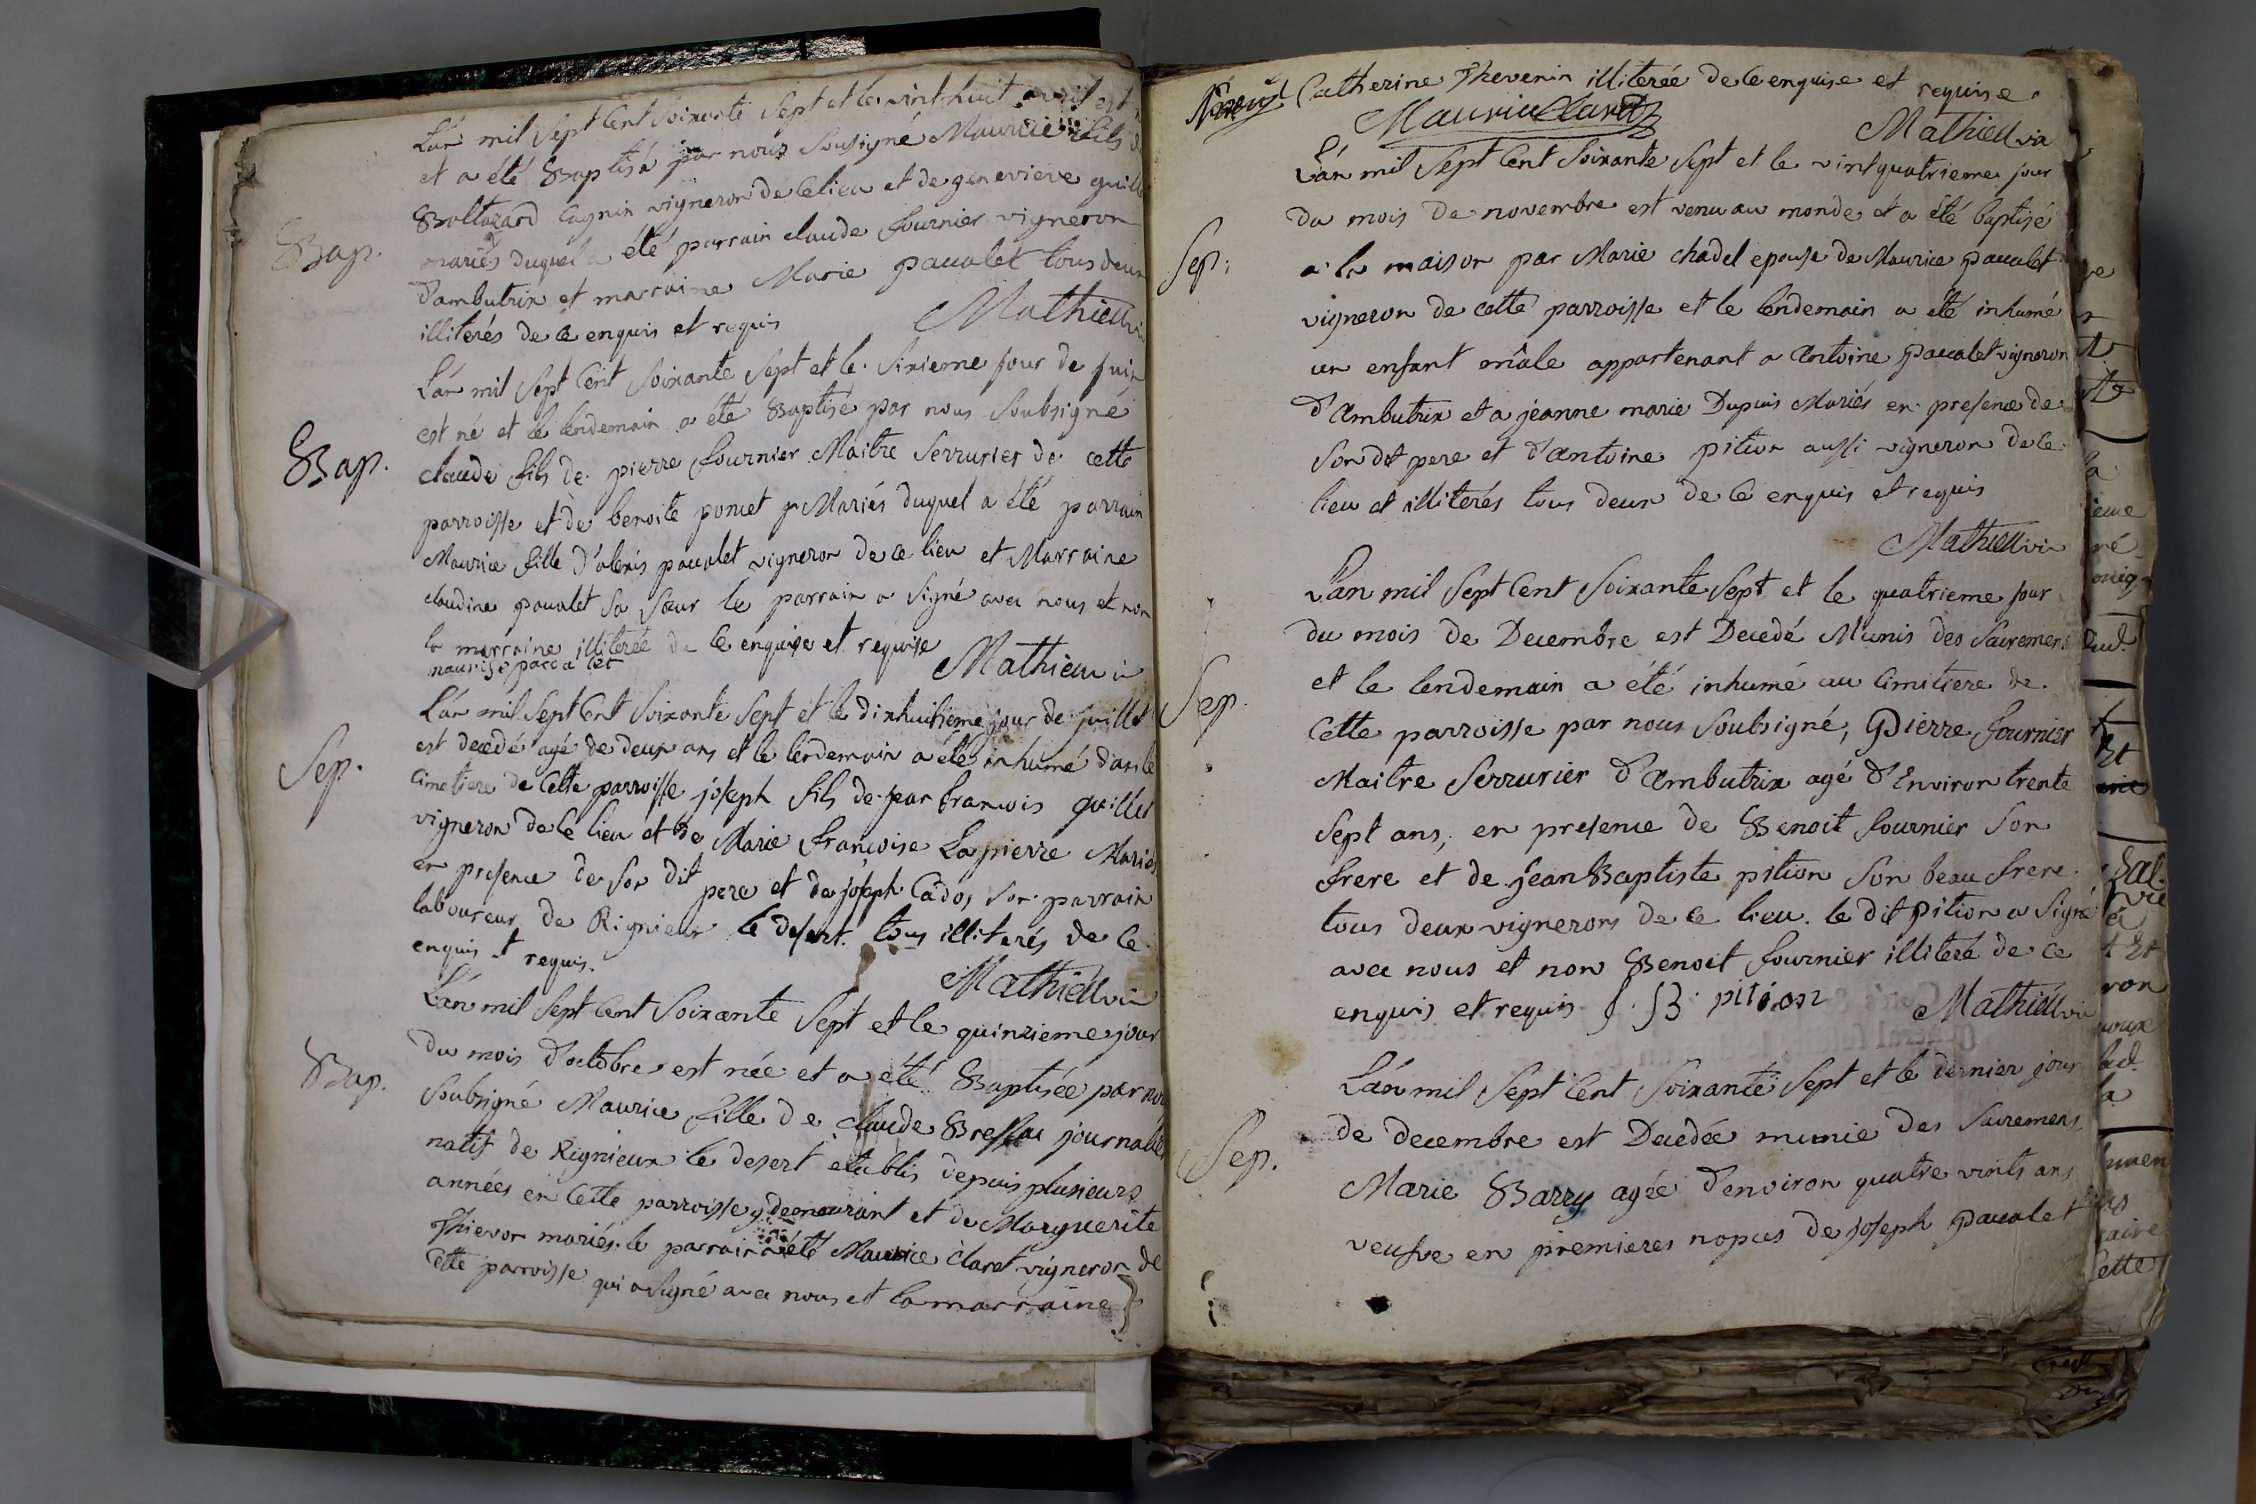 L'an mil Sept Cent Soixante Sept et le vint huit avril est
et a été Baptisé par nous Sousigné Maurice fils
Baltazard Cagnin vigneron de Ce lieu et de genevieve guill
Bap.
mariés duquel a été parrain claude fournier vigneron
d'ambutrix et marraine Marie pacalet tous deux
illiterés de ce enquis et requis Mathieu
L'an mil Sept Cent Soixante Sept et le Sixieme jour de juin
est né et le lendemain a été Baptisé par nous Soubsigné
Bap.
claude fils de pierre fournier Maitre Serrurier de cette
parroisse et de benoite poncet Mariés duquel a été parrain
Maurice fille d'alexis pacalet vigneron de ce lieu et Marraine
claudine pacalet Sa Sœur le parrain a Signé avec nous et non
la marraine illiterée de Ce enquise et requise
maurise pacalet Mathieu
L'an mil Sept Cent Soixante Sept et le dixhuitieme jour de juillet
est decedé agé de deux ans et le lendemain a été inhumé dans le
Sep.
Cimetiere de Cette parroisse joseph fils de jean francois guillet
vigneron de Ce lieu et de Marie francoise Lapierre Mariés
en presence de Son dit pere et de joseph Cados Son parrain
laboureur de Rignieux le desert. tous illiterés de Ce
enquis et requis.
Mathieu
L'an mil Sept Cent Soixante Sept et le quinzieme jour
du mois d'octobre est née et a été Baptisée par nou
Bap.
Soubsigné Maurice fille de claude Bressac journalier
natif de Rignieux le desert etablis depuis plusieurs
années en Cette parroisse y demeurant et de Marguerite
Thievon mariés. le parrain a été Maurice claret vigneron de
Cette parroisse qui a Signé avec nous et la marraine
Catherine Thevenin illiterée de Ce enquise et requise.
Maurice Claret Mathieu
L'an mil Sept Cent Soixante Sept et le vint quatrieme jour
du mois de novembre est venu au monde et a été baptisé
Sep.
a la maison par Marie chadel epouse de Maurice pacalet
vigneron de cette parroisse et le lendemain a été inhumé
un enfant mâle appartenant a antoine pacalet vigneron
d'Ambutrix et a jeanne marie Dupuis Mariés en presence de
Son dit pere et d'antoine pition aussi vigneron de Ce
lieu et illiterés tous deux de Ce enquis et requis
Mathieu
L'an mil Sept Cent Soixante Sept et le quatrieme jour
du mois de Decembre est Decedé Munis des Sacremens
Sep.
et le lendemain a été inhumé au Cimitiere de
Cette parroisse par nous Soubsigné, Pierre fournier
Maitre Serrurier d'Ambutrix agé d'Environ trente
Sept ans, en presence de Benoit fournier Son
frere et de jean Baptiste pition Son beau frere
tous deux vignerons de Ce lieu. le dit Pition a Signé
avec nous et non Benoit fournier illiteré de Ce
enquis et requis. J. B. pition Mathieu
L'an mil Sept Cent Soixante Sept et le dernier jour
de decembre est Decedée munie des Sacremens
Sep.
Marie Barry agée d'environ quatre vints ans
veufve en premieres nopces de joseph Pacalet